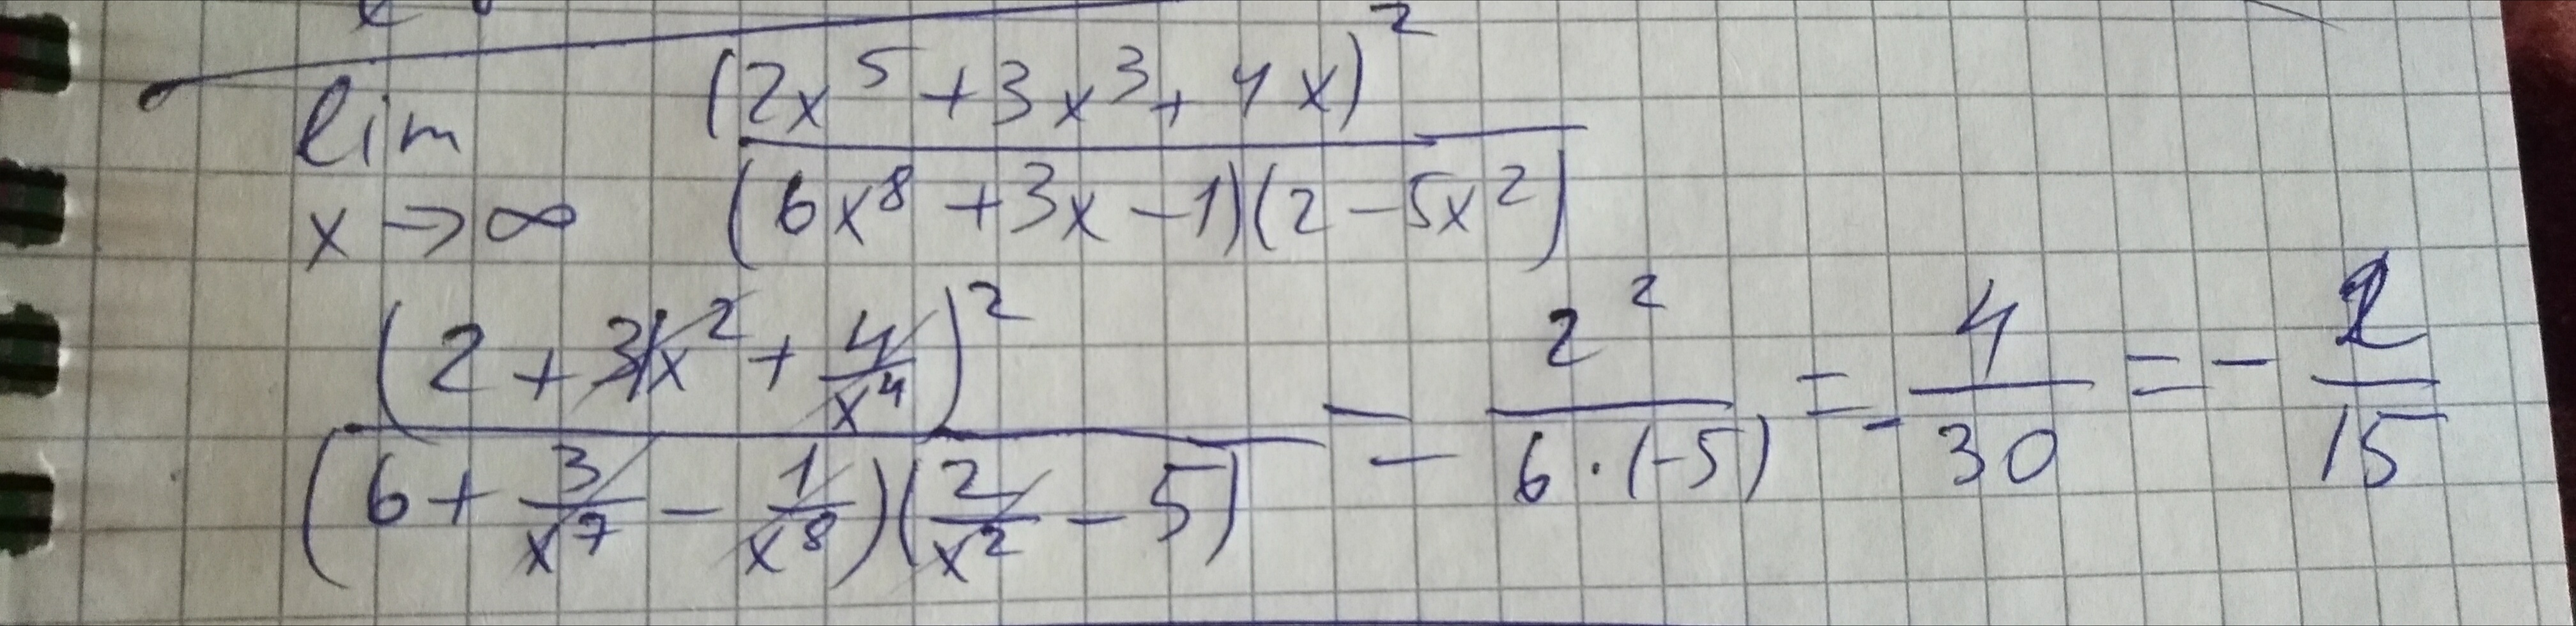 lim x→∞ (2x⁵ + 3x³ + 4x)² / (6x⁸ + 3x − 1)(2 − 5x²)
(2 + 3/x² + 4/x⁴)² / (6 + 3/x⁷ − 1/x⁸)(2/x² − 5) = 2² / 6 · (−5) = − 4/30 = − 2/15